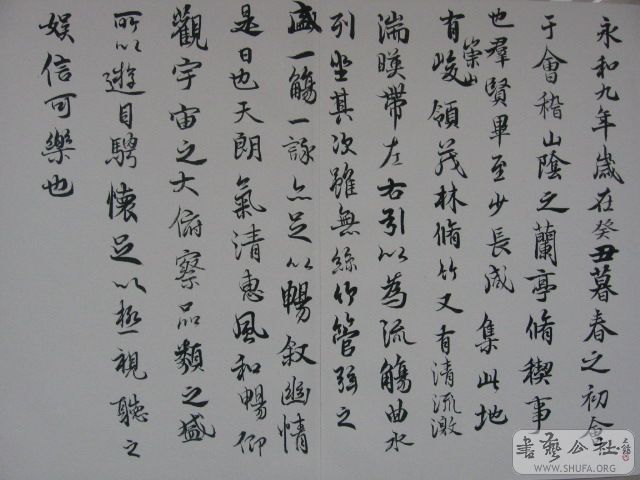 永和九年歲在癸丑暮春之初會
于會稽山陰之蘭亭脩禊事
也羣賢畢至少長咸集此地
有崇山峻領茂林脩竹又有清流激
湍暎帶左右引以為流觴曲水
列坐其次雖無絲竹管弦之
盛一觴一詠亦足以暢敘幽情
是日也天朗氣清惠風和暢仰
觀宇宙之大俯察品類之盛
所以遊目騁懷足以極視聽之
娛信可樂也
書藝公社
WWW.SHUFA.ORG